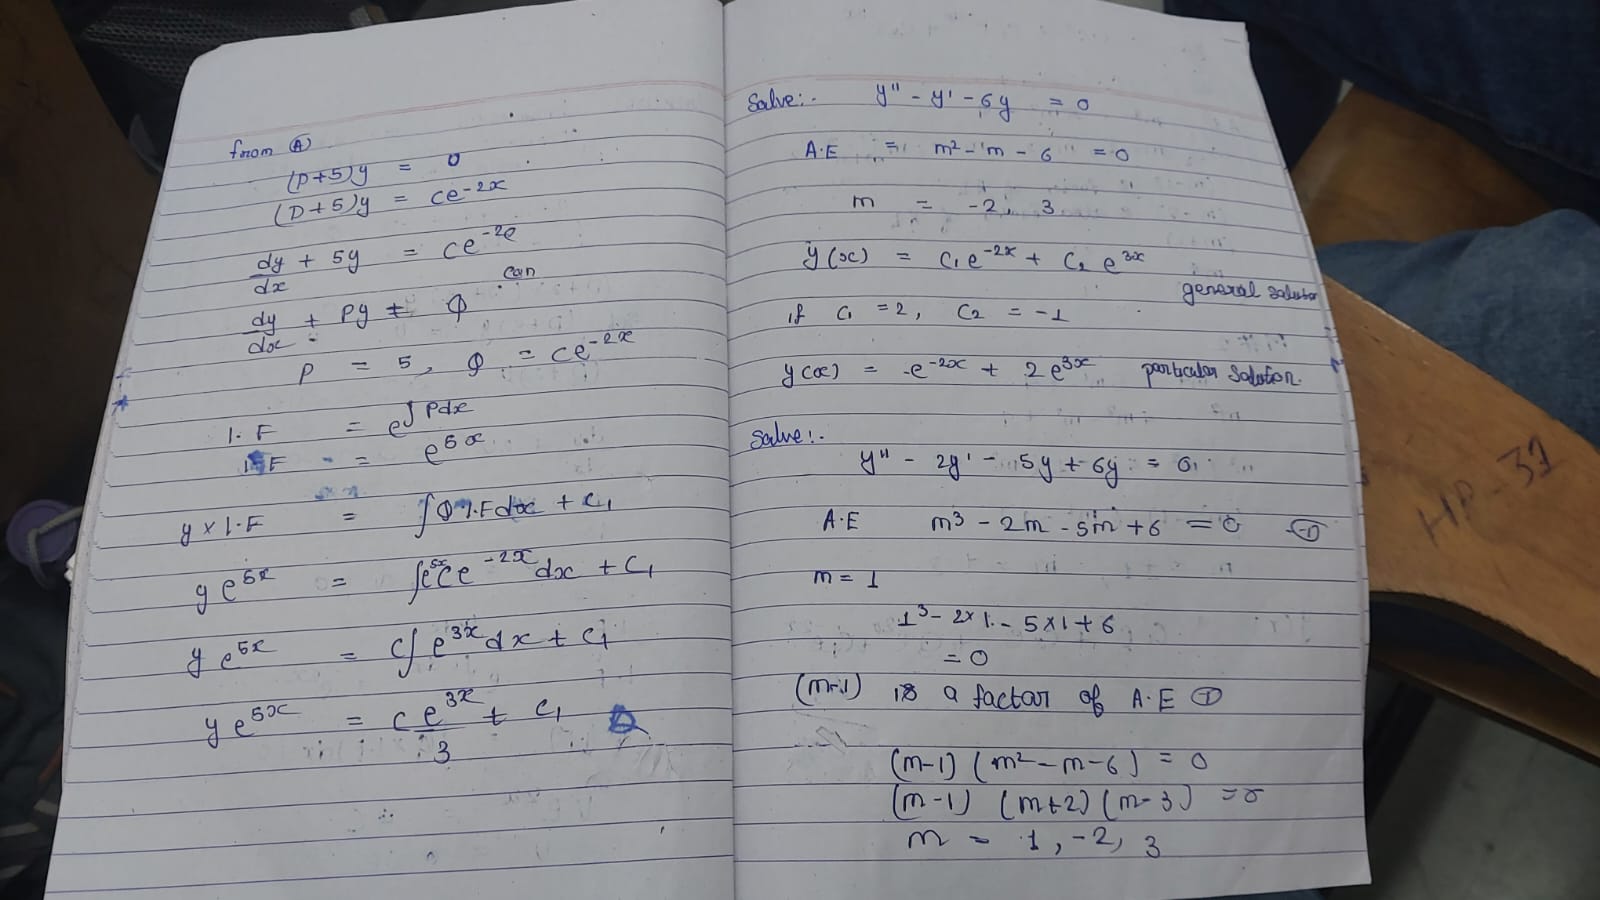 from Ⓐ
(D+5)y = 0
(D+5)y = ce^-2x
dy/dx + 5y = ce^-2e
can
dy/dx + Py = Φ
P = 5, Φ = ce^-2x
I.F = e^∫Pdx
I.F = e^5x
y x I.F = ∫Φ I.F dx + c₁
y e^5x = ∫e^5x c e^-2x dx + c₁
y e^5x = c∫ e^3x dx + c₁
y e^5x = c e^3x/3 + c₁
Solve:- y'' - y' - 6y = 0
A.E = m² - m - 6 = 0
m = -2, 3
y(x) = c₁e^-2x + c₂ e^3x
general solution
if c₁ = 2, c₂ = -1
y(x) = -e^-2x + 2e^3x particular solution.
Solve:-
y'' - 2y' - 5y + 6y = 0
A.E m³ - 2m - 5m + 6 = 0 ①
m = 1
1³ - 2x1 - 5x1 + 6
= 0
(m-1) is a factor of A.E ①
(m-1) (m² - m - 6) = 0
(m-1) (m+2) (m-3) = 0
m = 1, -2, 3
HP-37